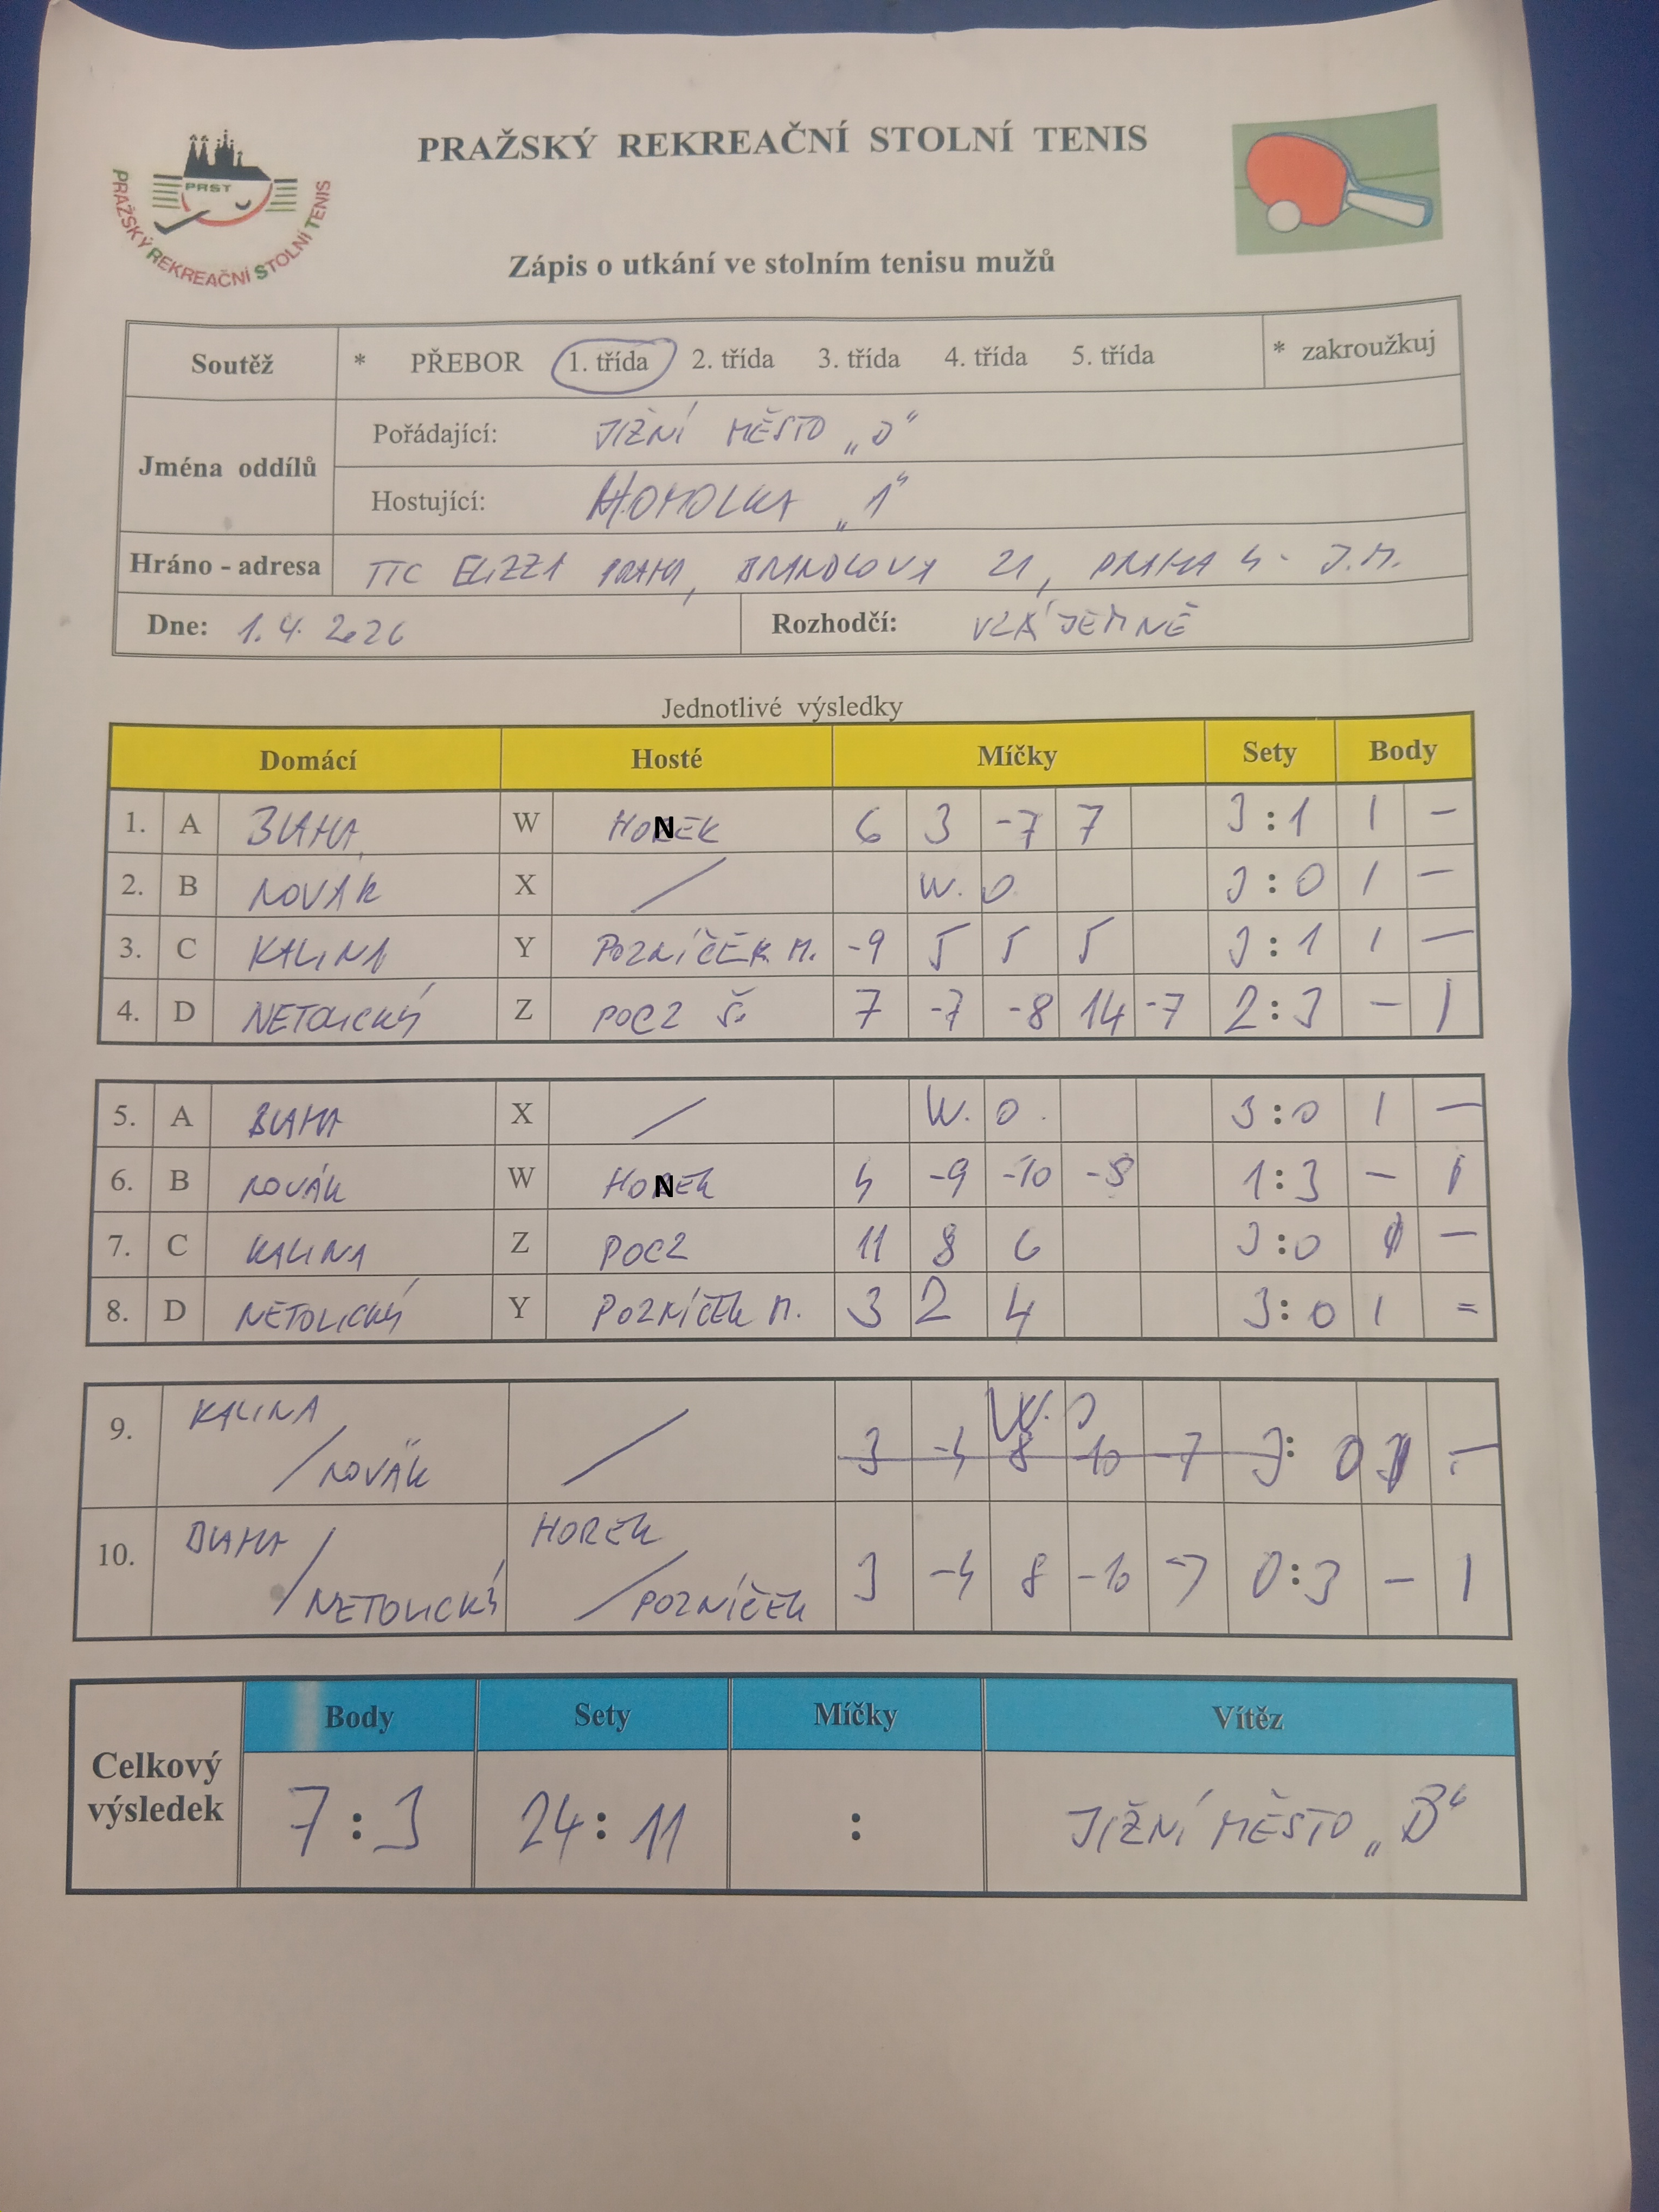 PRAŽSKÝ REKREAČNÍ STOLNÍ TENIS
PRST
PRAŽSKÝ REKREAČNÍ STOLNÍ TENIS
Zápis o utkání ve stolním tenisu mužů
Soutěž * PŘEBOR 1. třída 2. třída 3. třída 4. třída 5. třída * zakroužkuj
Jména oddílů
Pořádající: JIŽNÍ MĚSTO
Hostující: HOMOLKA „1"
Hráno - adresa TTC ELIZZA PRAHA, BRANDLOVA 21, PRAHA 4 - J.M.
Dne: 1.4.2026 Rozhodčí: VZÁJEMNĚ
Jednotlivé výsledky
Domácí Hosté Míčky Sety Body
1. A BLAHA W HONEK 6 3 -7 7 3:1 1 -
2. B NOVÁK X / W.O. 3:0 1 -
3. C KALINA Y POZNÍČEK M. -9 5 5 5 3:1 1 -
4. D NETOLICKÝ Z POCZ Š. 7 -7 -8 14 -7 2:3 - 1
5. A BLAHA X / W.O. 3:0 1 -
6. B NOVÁK W HONEK 4 -9 -10 -8 1:3 - 1
7. C KALINA Z POCZ 11 8 6 3:0 1 -
8. D NETOLICKÝ Y POZNÍČEK M. 3 2 4 3:0 1 =
9. KALINA / NOVÁK / W.O 3 -4 8 -10 -7 3:0 1 -
10. BLAHA / NETOLICKÝ HOREK / POZNÍČEK 3 -4 8 -10 -7 0:3 - 1
Celkový výsledek
Body Sety Míčky Vítěz
7:3 24:11 : JIŽNÍ MĚSTO „B"